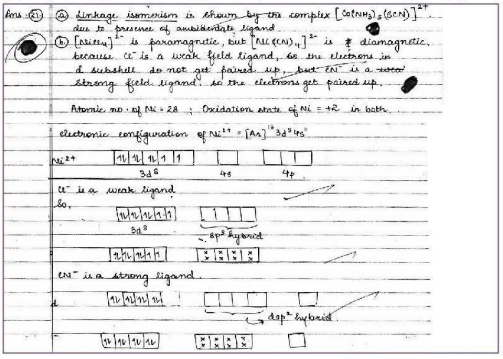 Ans. (21) (a) Linkage isomerism is shown by the complex [Co(NH₃)₅(SCN)]²⁺
due to presence of ambidentate ligand.
(b) [NiCl₄]²⁻ is paramagnetic, but [Ni(CN)₄]²⁻ is diamagnetic,
because Cl⁻ is a weak field ligand, so the electrons in
d subshell do not get paired up, but CN⁻ is a
strong field ligand, so the electrons get paired up.
Atomic no. of Ni = 28 ; Oxidation state of Ni = +2 in both.
electronic configuration of Ni²⁺ = [Ar]¹⁸ 3d⁸ 4s⁰
Ni²⁺
3d⁸ 4s 4p
Cl⁻ is a weak ligand
So,
3d⁸
sp³ hybrid
CN⁻ is a strong ligand.
dsp² hybrid.